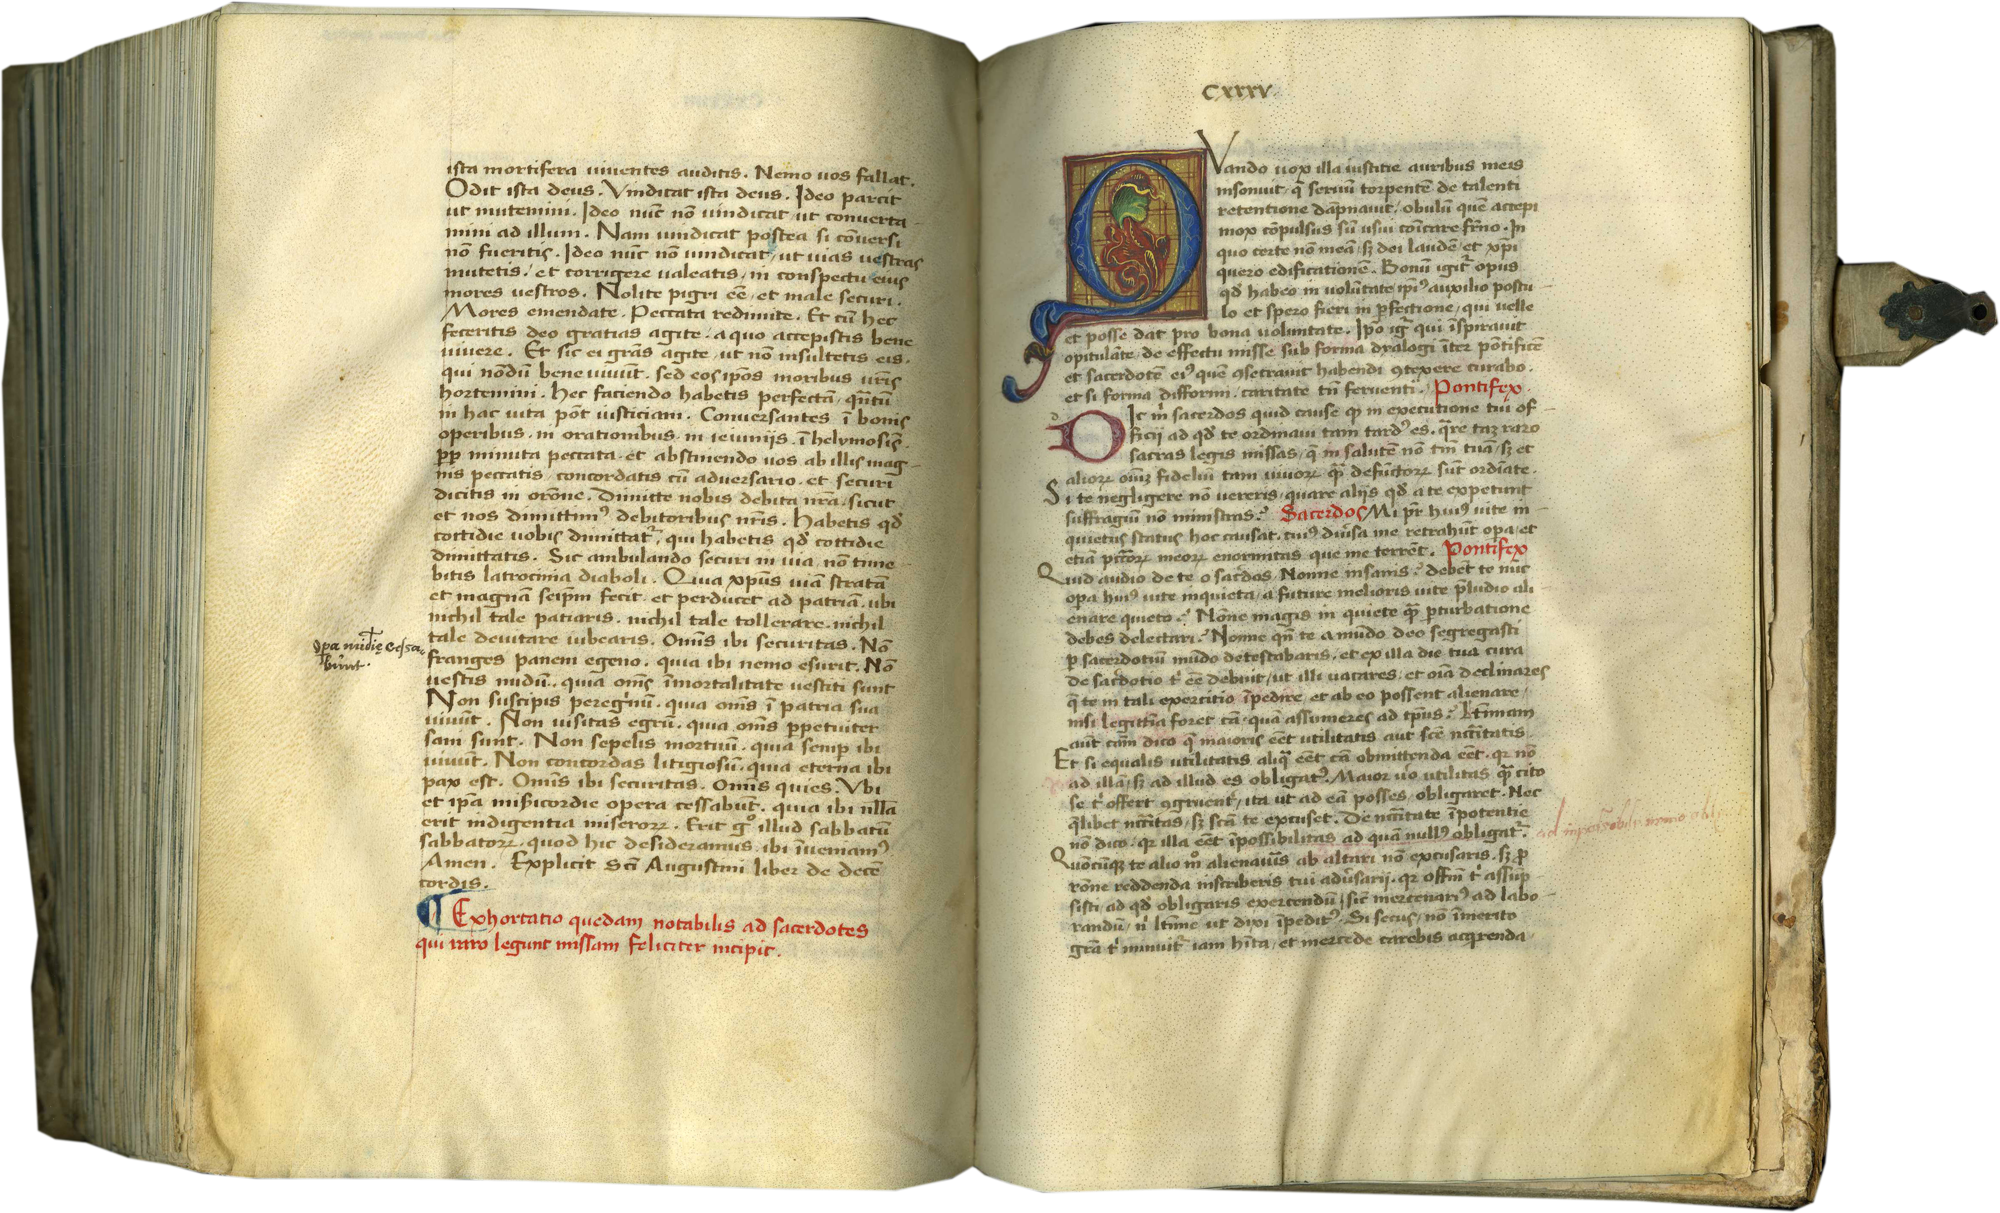 ista mortifera uiuentes auditis. Nemo uos fallat.
Odit ista deus. Vindicat ista deus. Ideo parcit
ut mutemini. Ideo nūc nō uindicat, ut conuerta-
mini ad illum. Nam uindicat postea si cōuersi
nō fueritis. Ideo nūc nō uindicat, ut uias uestras
mutetis, et corrigere ualeatis, in conspectu eius
mores uestros. Nolite pigri eē, et male securi.
Mores emendate. Peccata redimite. Et cū hec
feceritis deo gratias agite. a quo accepistis bene
uiuere. Et sic ei grās agite, ut nō insultetis eis.
qui nōdū bene uiuūt. sed eos ipōs moribus uris
hortemini. Hec faciendo habetis perfectā, quātū
in hac uita pōt iusticiam. Conuersantes ī bonis
operibus. in orationibus. in ieiunijs. ī helymosis.
pp minuta peccata. et abstinendo uos ab illis mag-
nis peccatis. concordatis cū aduersario. et securi
dicitis in orōne. Dimitte nobis debita nrā. sicut
et nos dimittim9 debitoribus nris. Habetis qd
cottidie uobis dimittat, qui habetis qd cottidie
dimittatis. Sic ambulando securi in uia, nō time-
bitis latrocinia diaboli. Quia xpus uiā stratā
et magnā seipm fecit. et perducet ad patriā. ubi
nichil tale patiaris. nichil tale tollerare. nichil
tale deuitare iubearis. Omis ibi securitas. Nō
Opa mīdie cessa-
būnt.
franges panem egeno. quia ibi nemo esurit. Nō
uestis nudū. quia oms īmortalitate uestiti sunt
Non suscipis peregrinū. quia oms ī patria sua
uiuūt. Non uisitas egrū. quia oms ppetuiter
sani sunt. Non sepelis mortuū. quia semp ibi
uiuūt. Non concordas litigiosū. quia eterna ibi
pax est. Omis ibi securitas. Omis quies. Vbi
et ipā mīscordie opera cessabūt. quia ibi nllā
erit indigentia miseroꝝ. Erit g° illud sabbatū
sabbatoꝝ. quod hic desideramus. ibi īueniam9
Amen. Explicit Sci Augustini liber de decē
cordis.
¶ Exhortatio quedam notabilis ad sacerdotes
qui raro legunt missam feliciter incipit.
CXXXV
QVando uox illa iustitie auribus meis
insonuit, q seruū torpentē de talenti
retentione dāpnauit, obulū quē accepi
mox cōpulsus sū usui cōicare frno. In
quo certe nō meā, sꝫ dei laudē, et xpi
quero edificationē. Bonū igit opus
qd habeo in volūtate ipi9 auxilio postu-
lo et spero fieri in pfectione, qui velle
et posse dat pro bona voluntate. Ipo igr qui īspirauit
opitulāte, de effectu misse sub forma dyalogi īter pōtificē
et sacerdotē ei9 quē ꝯsecrauit habendi ꝯtexere curabo.
et si forma difformi. caritate tn feruenti. Pontifex.
DIc m sacerdos quid cause qꝫ in executione tui of-
ficij ad qd te ordinaui tam tard9 es. qre taꝫ raro
sacras legis missas, q in salutē nō tm tuā, sꝫ et
alioꝝ oīuꝫ fideliū tam uiuoꝝ q defūctoꝝ sūt ordīate.
Si te negligere nō uereris, quare alijs qd a te expetunt
suffragiū nō ministras? Sacerdos Mi pr hui9 uite in-
quietus status hoc causat. cui9 diūsa me retrahūt opa, et
etiā pctōꝝ meoꝝ enormitas que me terrēt. Pontifex
Quid audio de te o sacdos, Nonne insanis? debet te nūc
opa hui9 uite inquieta, a future melioris uite pludio ali-
enare quieto? Nōne magis in quiete q pturbatione
debes delectari? Nonne qn te a mūdo deo segregasti
p sacerdotiū mūdo detestabaris, et ex illa die tua cura
de sacdotio t eē debuit, ut illi uacares, et oīa declinares
q te in tali exercitio īpedire, et ab eo possent alienare,
nisi legittīa foret cā, quā assumeres ad tps? Ltīmam
aūt cām dico q maioris eēt utilitatis aut scē ncītatis
Et si equalis utilitatis aliq eēt cā obmittenda eēt. qr nō
ad illā, sꝫ ad illud es obligat9. Maior uo utilitas q cito
se t offert ꝯgruent, ita ut ad eā posses, obligaret. Nec
qlibet ncītas, sꝫ scā te excuset. De ncītate īpotentie
nō dico. qr illa eēt īpossibilitas ad quā null9 obligat.
ad impossibile nemo obli
Quōcūqꝫ te alio m° alienauis ab altari nō excusaris. sꝫ p
rōne reddenda inscriberis tui adūsarij. qr offm t assup
sisti, ad qd obligaris exercendū, sic mercenari9 ad labo-
randū, n ltīme ut dixi īpedit9. Si secus, nō īmerito
grā t minuit iam hīta, et mercede carebis acqrenda